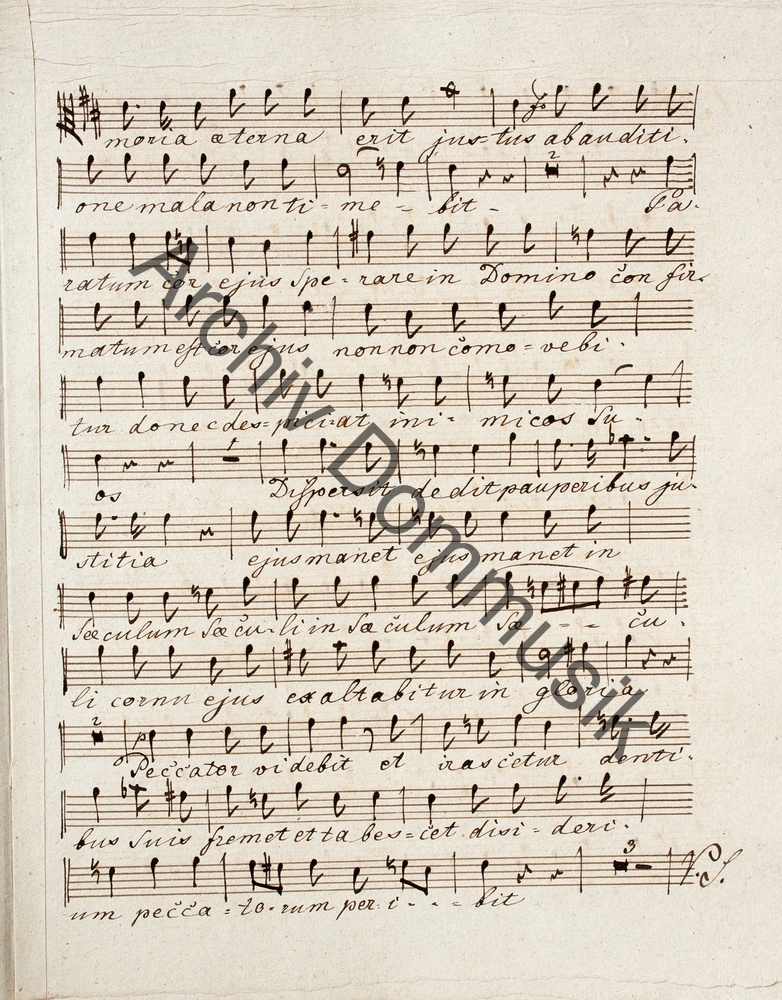 moria æterna erit jus=tus ab auditi.
one mala non ti= me - bit - Pa.
ratum cor ejus spe= rare in Domino con fir.
matum est cor ejus non non como= vebi.
tur donec des= pici=at ini= micos su.
os Dispersit dedit pauperibus ju.
stitia ejus manet ejus manet in
sæculum sæcu.li in sæ culum sæ - - cu.
li cornu ejus exaltabitur in gloria
Peccator videbit et irascetur denti.
bus suis fremet et ta bes=cet disi= deri.
um pecca=to.rum per i - - = bit
V.S.
Archiv Dommusik